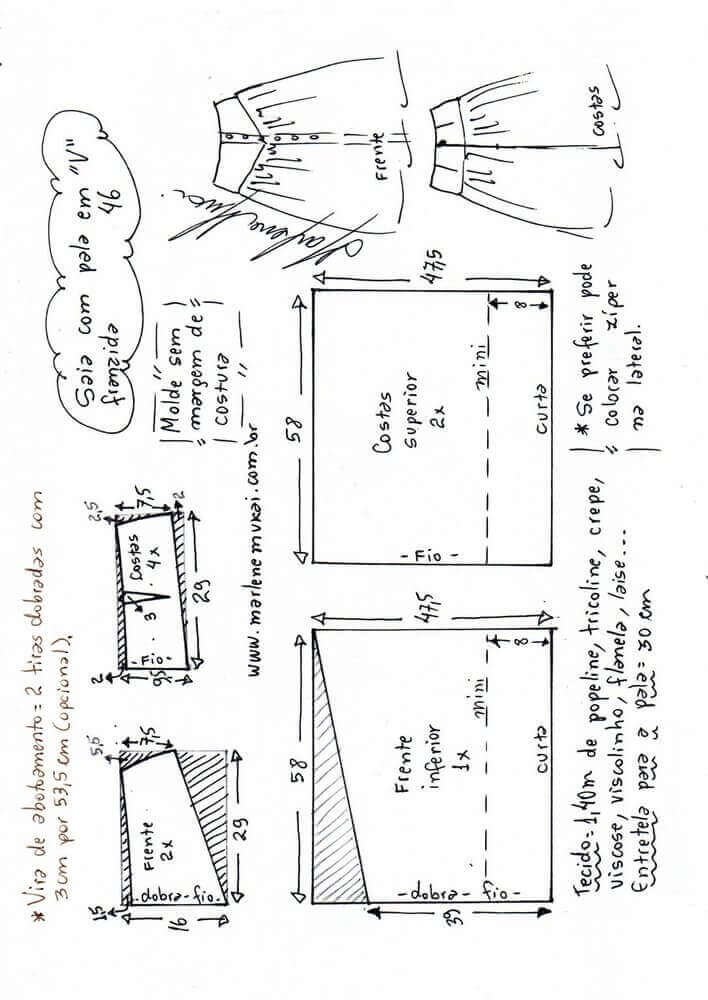 Saia com pala em "V" 46
franzida
* Vira de abotoamento = 2 tiras dobradas com
3cm por 53,5 cm (opcional).
Molde sem
margem de
costura
www.marlenemukai.com.br
1,5
5,5
7,5
Frente
2x
-dobra-fio-
16
29
2
2,5
7,5
2
Costas
4x
3
-Fio-
9,5
29
Frente
Costas
58
47,5
Frente
inferior
1x
mini
8
curta
-dobra- fio-
39
58
47,5
Costas
superior
2x
mini
8
curta
-Fio-
Tecido = 1,40m de popeline, tricoline, crepe,
viscose, viscolinho, flanela, laise...
Entretela para a pala = 30 cm
* Se preferir pode
colocar zíper
na lateral.